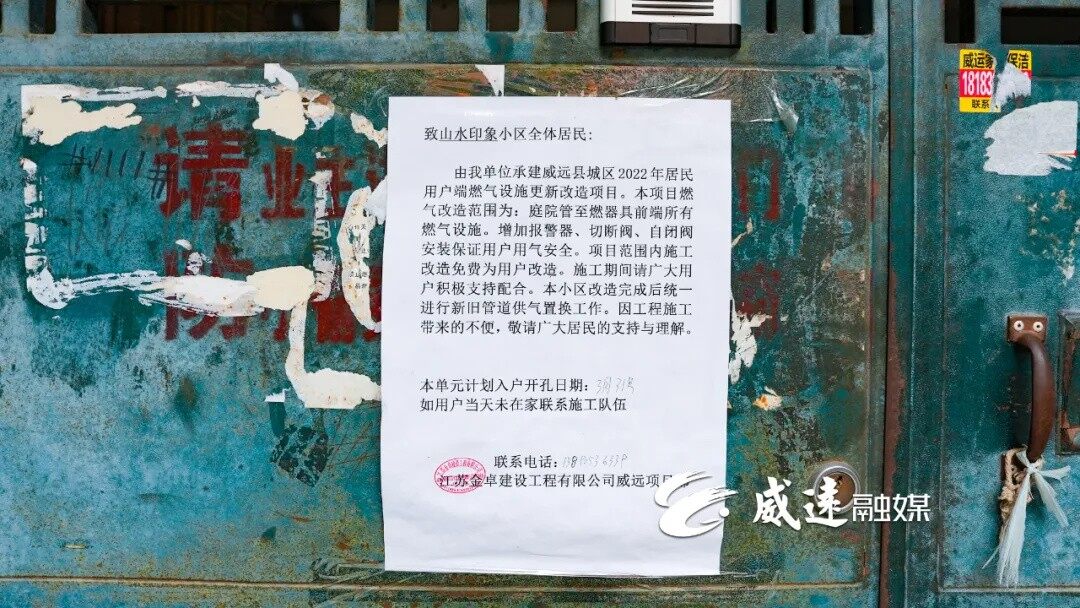 威运家
保洁
18183
联系
请
防
致山水印象小区全体居民：
由我单位承建威远县城区2022年居民
用户端燃气设施更新改造项目。本项目燃
气改造范围为：庭院管至燃器具前端所有
燃气设施。增加报警器、切断阀、自闭阀
安装保证用户用气安全。项目范围内施工
改造免费为用户改造。施工期间请广大用
户积极支持配合。本小区改造完成后统一
进行新旧管道供气置换工作。因工程施工
带来的不便，敬请广大居民的支持与理解。
本单元计划入户开孔日期：3月31号
如用户当天未在家联系施工队伍
联系电话：
江苏金卓建设工程有限公司威远项
威远融媒